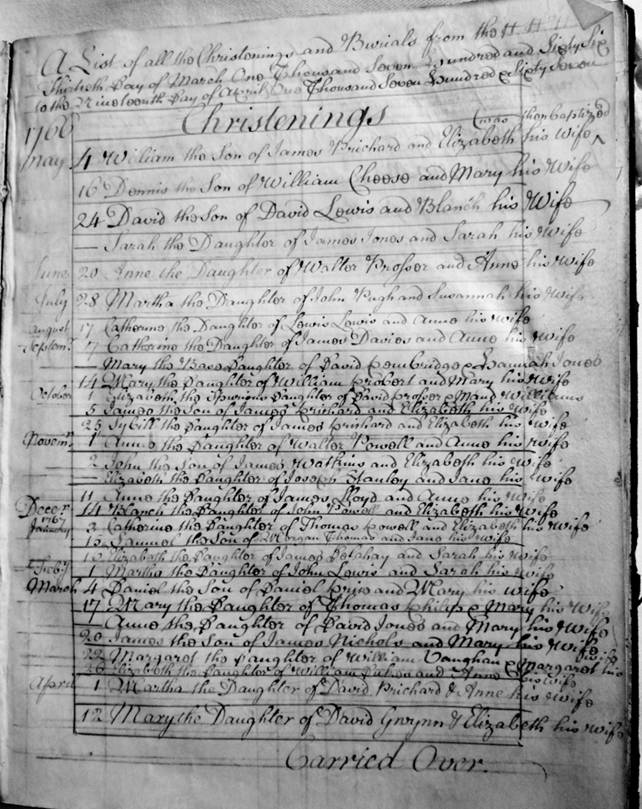 A List of all the Christenings and Burials from the
Thirtieth Day of March One Thousand Seven Hundred and Sixty Six
to the Nineteenth Day of April One Thousand Seven Hundred & Sixty Seven
Christenings
1766
May 4 William the Son of James Prichard and Elizabeth his Wife
16 Dennis the Son of William Cheese and Mary his Wife
24 David the Son of David Lewis and Blanch his Wife
— Sarah the Daughter of James Jones and Sarah his Wife
June 20 Anne the Daughter of Walter Prosser and Anne his Wife
July 28 Martha the Daughter of John Pugh and Susannah his Wife
August 17 Catherine the Daughter of Lewis Lewis and Anne his Wife
Septemr. 7 Catherine the Daughter of James Davies and Anne his Wife
— Mary the Base Daughter of David Pembridge & Hannah Jones
14 Mary the Daughter of William Probert and Mary his Wife
October 1 Elizabeth the Spurious Daughter of David Prosser & Maud Williams
5 James the Son of James Prichard and Elizabeth his Wife
25 Sybill the Daughter of James Prichard and Elizabeth his Wife
Novemr. 1 Anne the Daughter of Walter Powell and Anne his Wife
2 John the Son of James Watkins and Elizabeth his Wife
— Elizabeth the Daughter of Joseph Stanley and Jane his Wife
11 Anne the Daughter of James Lloyd and Anne his Wife
Decer. 14 Blanch the Daughter of John Powell and Elizabeth his Wife
1767
January 3 Catherine the Daughter of Thomas Powell and Elizabeth his Wife
13 Samuel the Son of Morgan Thomas and Jane his Wife
Elizabeth the Daughter of James and Sarah his Wife
Feby. 1 Martha the Daughter of John Lewis and Sarah his Wife
March 4 Daniel the Son of Daniel Pryce and Mary his Wife
17 Mary the Daughter of Thomas Philip & Mary his Wife
— Anne the Daughter of David Jones and Mary his Wife
20 James the Son of James Nichols and Mary his Wife
22 Margaret the Daughter of William Vaughan & Margaret his Wife
Elizabeth the Daughter of William and Anne his Wife
April 1 Martha the Daughter of David Prichard & Anne his Wife
12 Mary the Daughter of David Gwynn & Elizabeth his Wife
Carried Over.